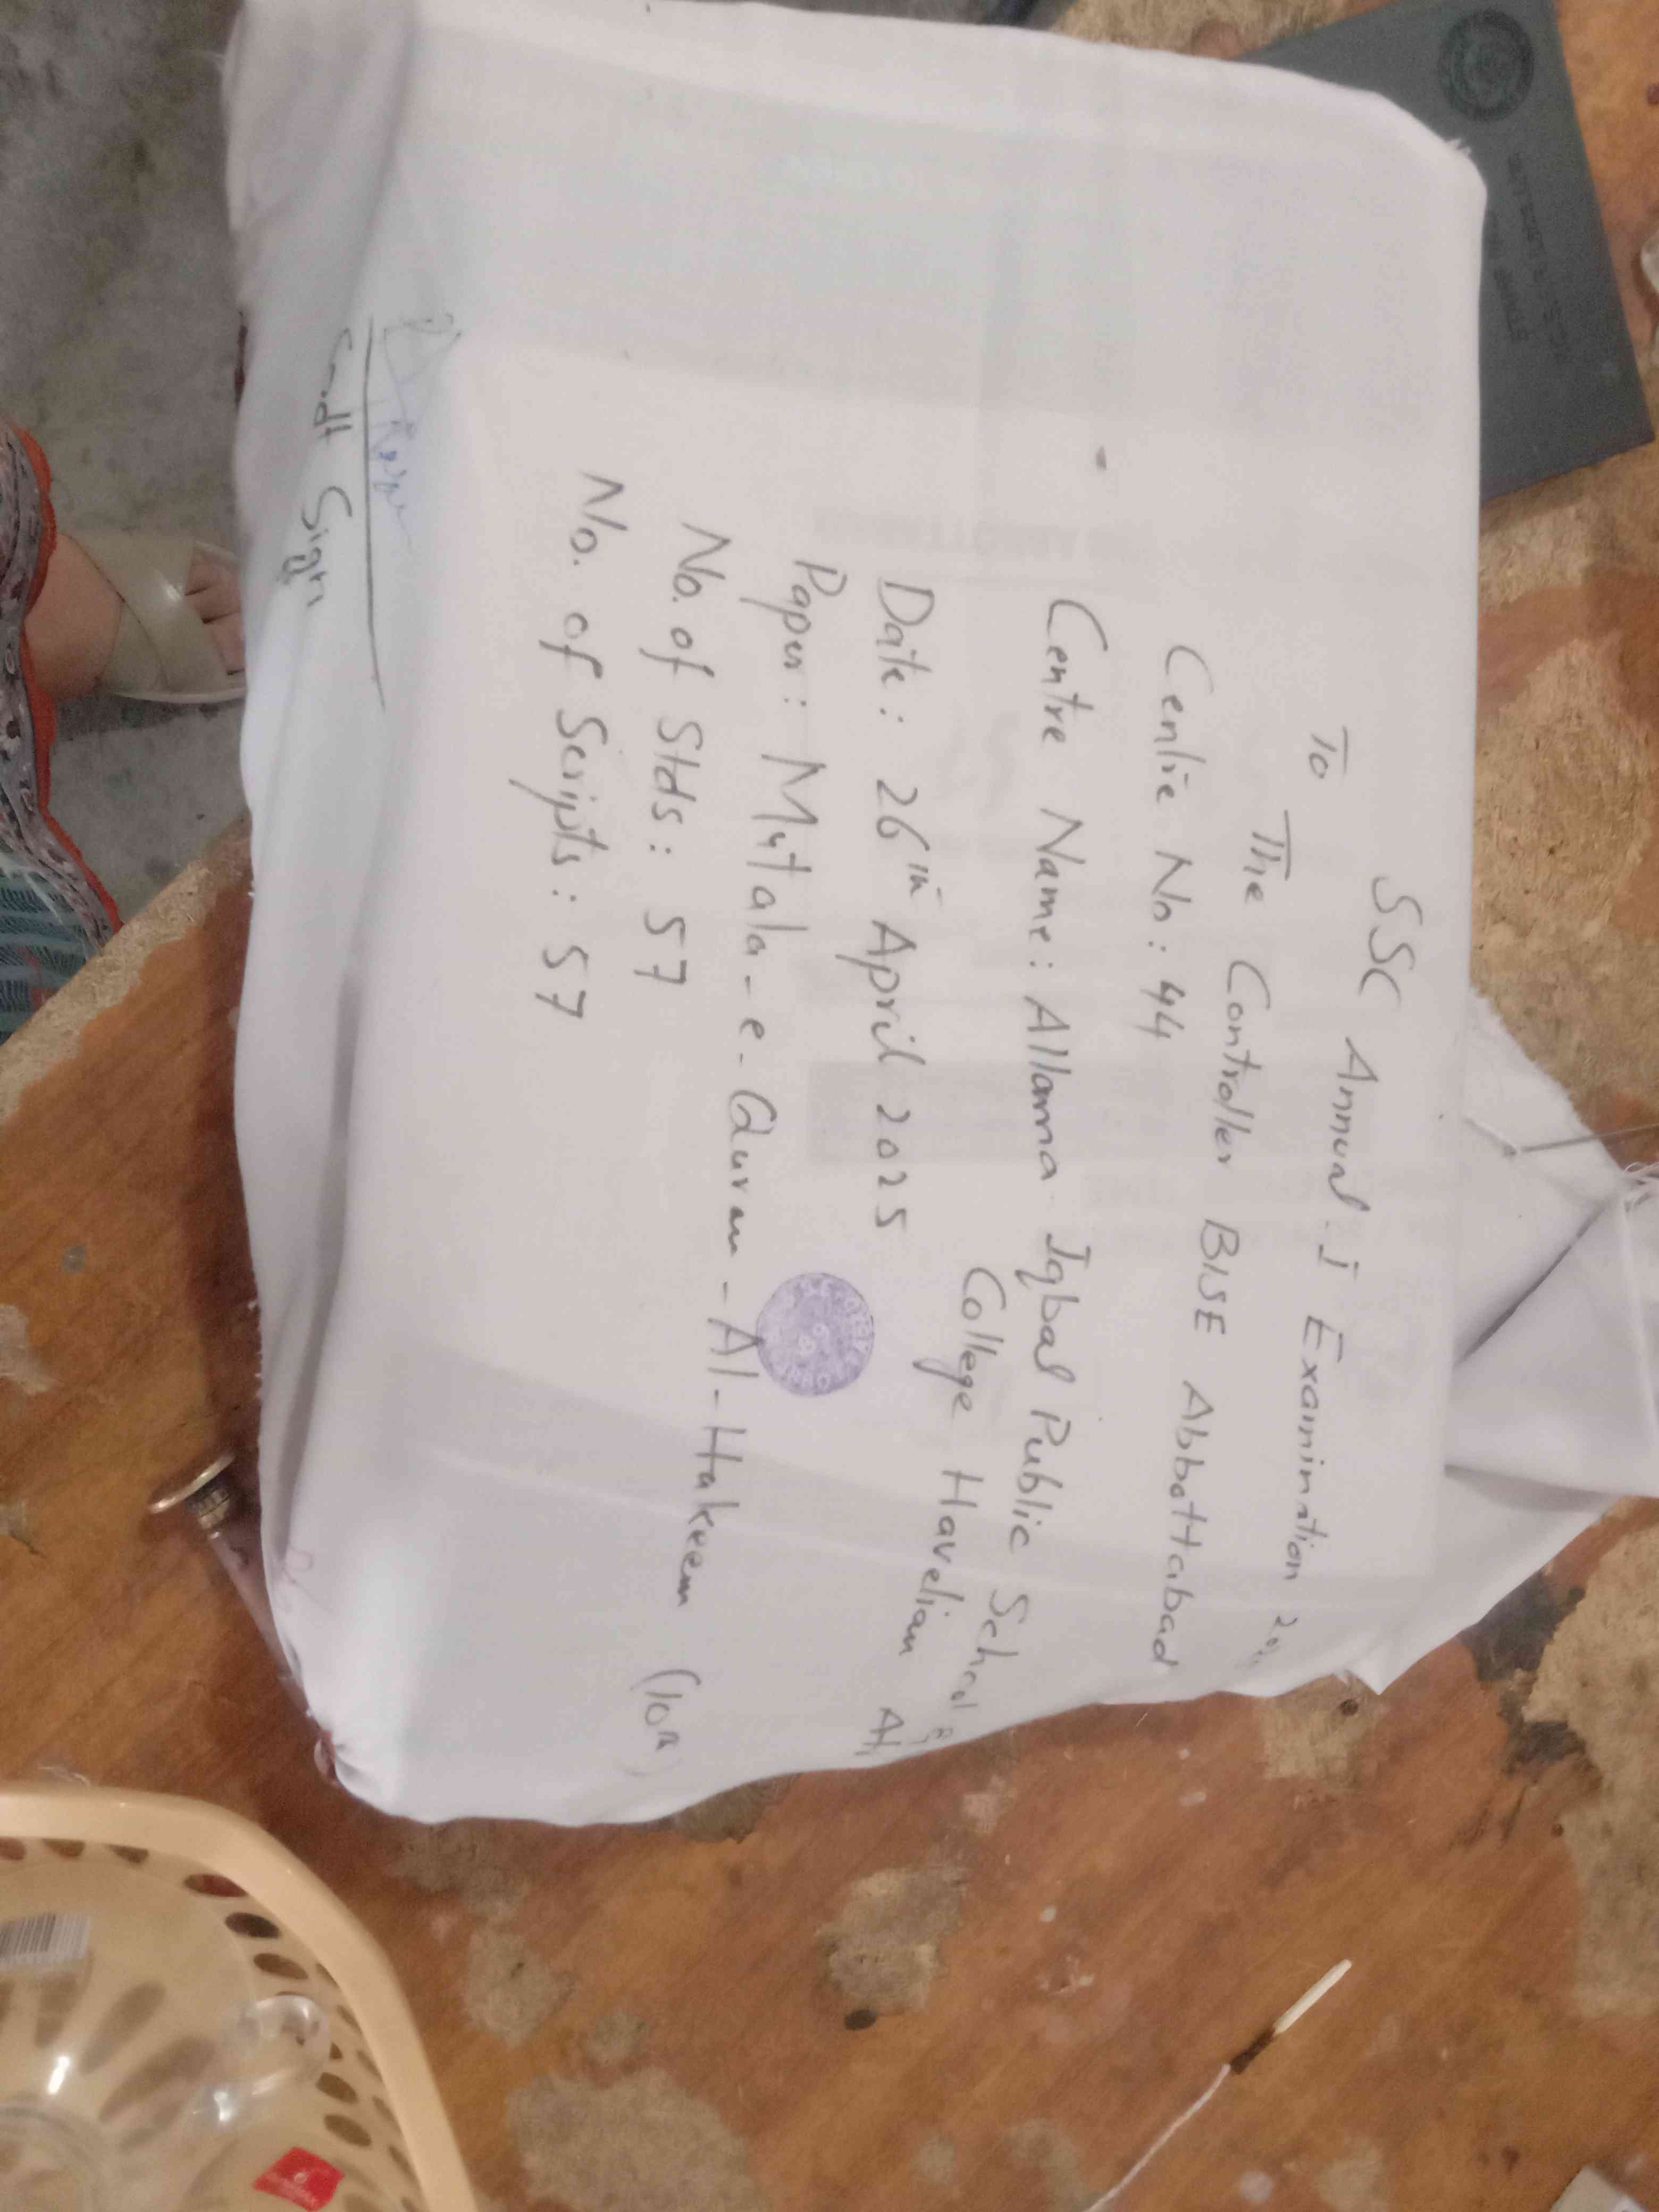 SSC Annual-I Examination
To
The Controller BISE Abbottabad
Centre No: 44
Centre Name: Allama Iqbal Public School &
College Havelian
Date: 26th April 2025
Paper: Mutala-e-Quran-Al-Hakeem (10th)
No. of Stds: 57
No. of Scripts: 57
Supdt Sign